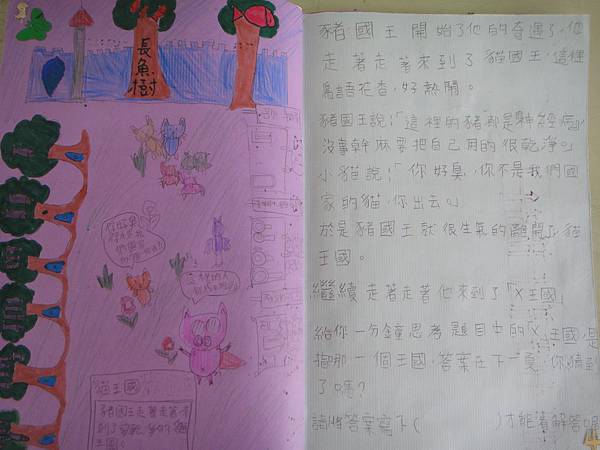 長魚樹
你好臭
貓王國
豬國王走著走著來
到了
豬國王開始了他的奇遇了,他
走著走著來到了貓國王,這裡
鳥語花香,好熱鬧。
豬國王說:「這裡的豬都是神經病
沒事幹麻要把自己用的很乾淨。」
小貓說:「你好臭,你不是我們國
家的貓,你出去。」
於是豬國王就很生氣的離開了貓
王國。
繼續走著走著他來到了「X王國」
給你一分鐘思考題目中的「X王國是
指那一個王國,答案在下一頁,你猜到
了嗎?
請將答案寫下( )才能看解答喔